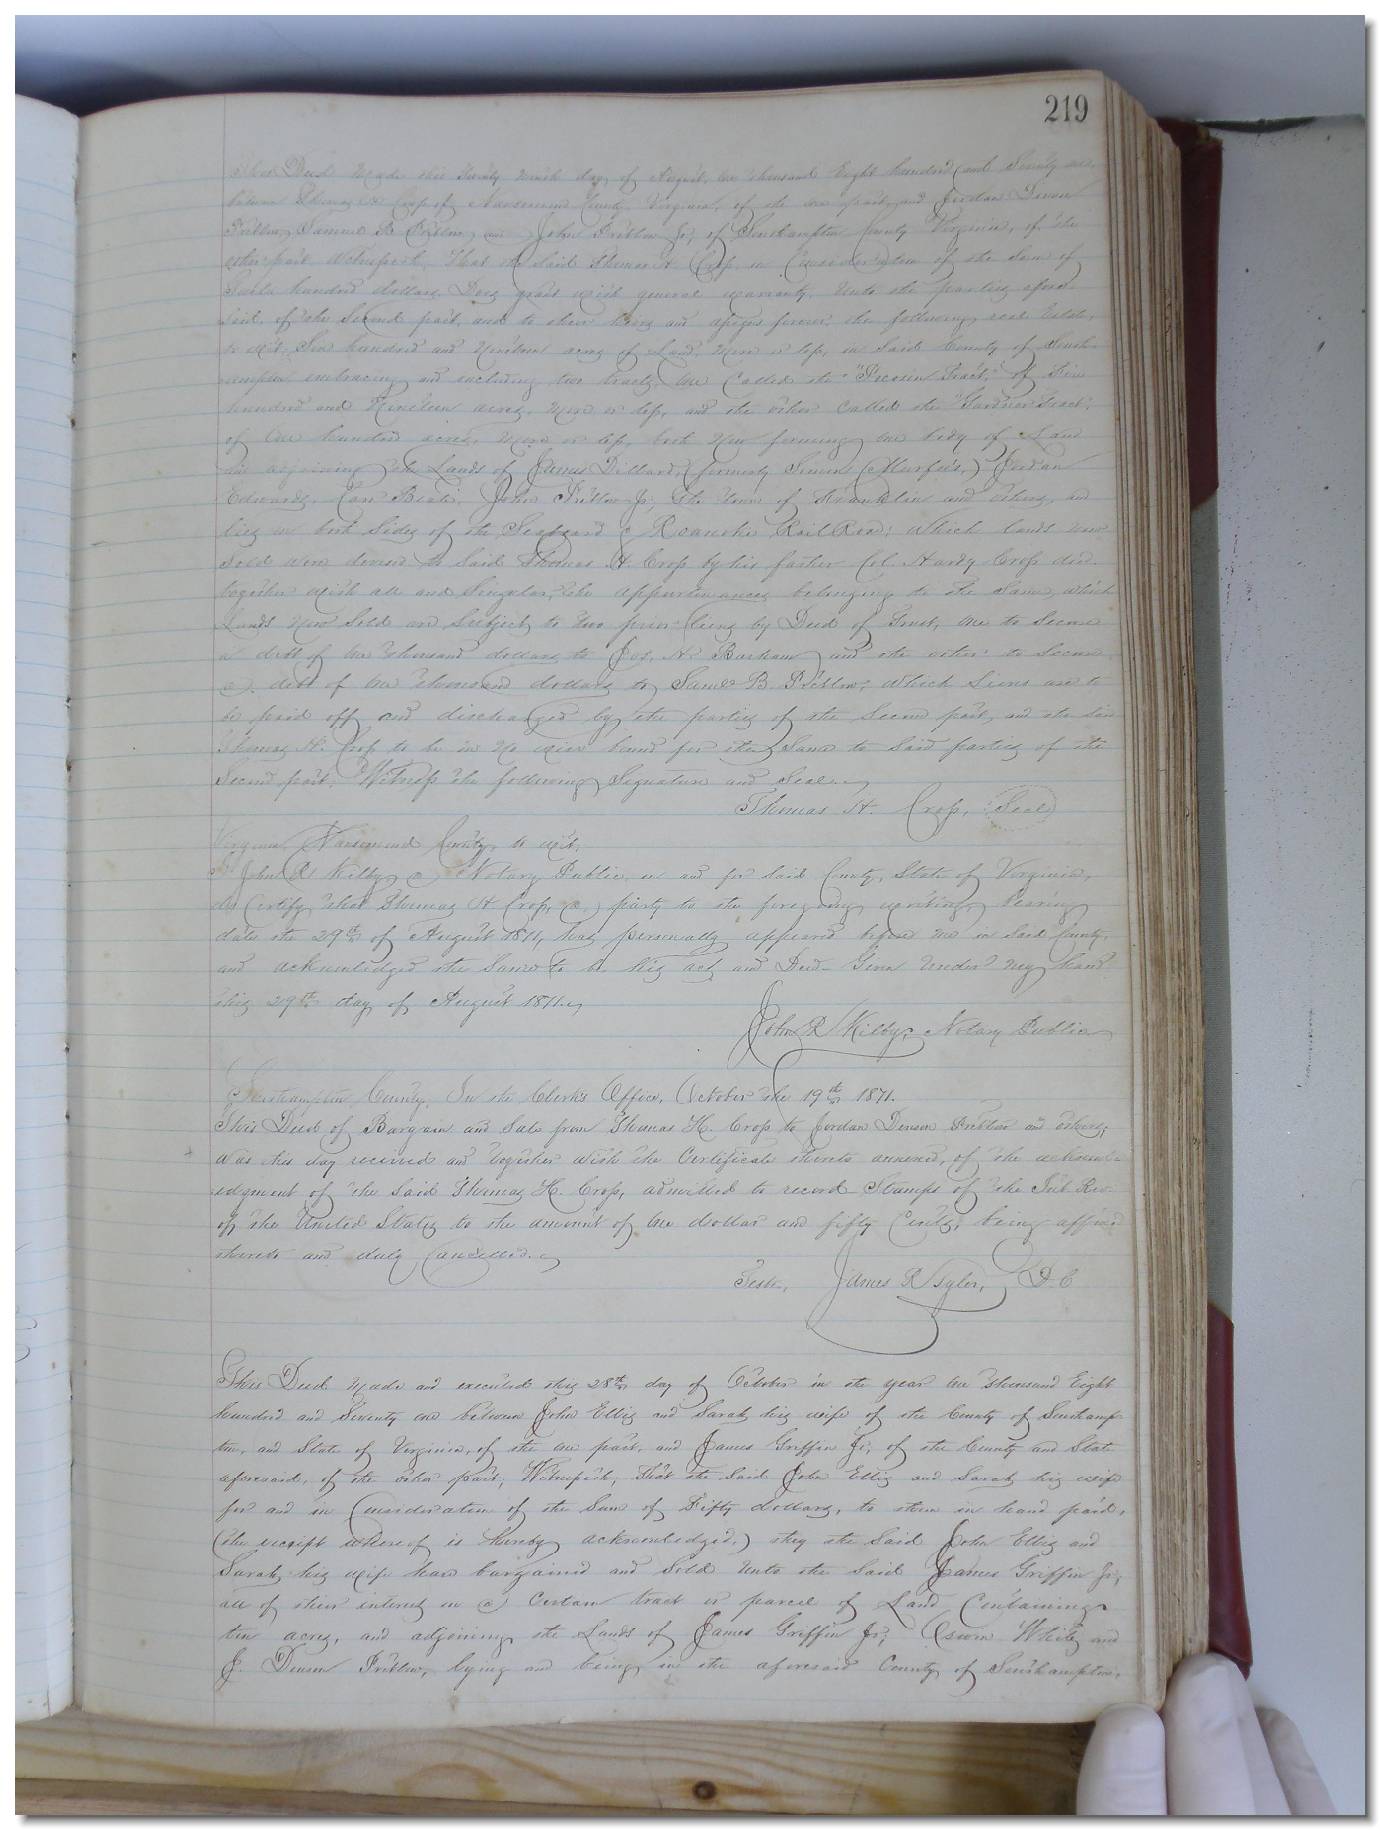 219
This Deed made this Twenty ninth day of August, one thousand Eight hundred and Seventy one
between Thomas H Crop of Nansemond County Virginia, of the one part, and Jordan Denson
Pretlow, Samuel B. Pretlow and John Pretlow Jr, of Southampton County Virginia, of the
other part Witnesseth, That the Said Thomas H. Crop in Consideration of the Sum of
hundred dollars, Does grant with general warranty, unto the parties afore
Said, of the Second part, and to their heirs and assigns forever, the following real Estate,
to wit: Six hundred and Nineteen acres of Land, more or less, in Said County of South-
ampton embracing and including two tracts, one Called the " Tract," of Five
hundred and Nineteen acres, more or less, and the other called the "Gardner Tract",
of One hundred acres, more or less, both now forming one body of Land
and adjoining the Lands of James Dillard, (formerly Simon Murfee's,) Jordan
Edwards, John Pretlow Jr, the town of Franklin and others, and
lies on both Sides of the Seaboard & Roanoke Rail Road; which lands now
Sold were devised to Said Thomas H. Crop by his father Col. Hardy Crop dec'd.
together with all and Singular, the appurtenances belonging to the Same, which
Lands now Sold are Subject to two prior liens by Deed of Trust, one to Secure
a debt of One thousand dollars to Jos. N. Barham and the other to Secure
a debt of One thousand dollars to Saml B. Pretlow; which Liens are to
be paid off and discharged by the parties of the Second part, and the Said
Thomas H. Crop to be in no wise bound for the Same to Said parties of the
Second part. Witness the following Signature and Seal.
Thomas H. Crop, Seal
Virginia, Nansemond County, to wit,
I John R Kilby, a Notary Public, in and for Said County, State of Virginia,
do Certify that Thomas H Crop, a party to the foregoing writing, bearing
date the 29th of August 1871, has personally appeared before me in Said County,
and acknowledged the Same to be his act and Deed. Given under my hand
this 29th day of August 1871.
John R Kilby, Notary Public
Southampton County, In the Clerk's Office, October the 19th 1871.
This Deed of Bargain and Sale from Thomas H. Crop to Jordan Denson Pretlow and others,
was this day received and together with the Certificate thereto annexed, of the acknowl-
edgment of the Said Thomas H. Crop, admitted to record Stamps of the Int. Rev.
of the United States to the amount of one dollar and fifty Cents, being affixed
thereto and duly cancelled.
Teste, James R Tyler, D.C
This Deed made and executed this 28th day of October in the year One thousand Eight
hundred and Seventy one between John Ellis and Sarah his wife of the County of Southamp-
ton, and State of Virginia, of the one part, and James Griffin Jr; of the County and State
aforesaid, of the other part, Witnesseth, That the Said John Ellis and Sarah his wife
for and in Consideration of the Sum of Fifty dollars, to them in hand paid,
(the receipt whereof is hereby acknowledged,) they the Said John Ellis and
Sarah his wife have bargained and Sold unto the Said James Griffin Jr;
all of their interest in a Certain tract or parcel of Land Containing
ten acres, and adjoining the Lands of James Griffin Jr; White and
J. Denson Pretlow, lying and being in the aforesaid County of Southampton,